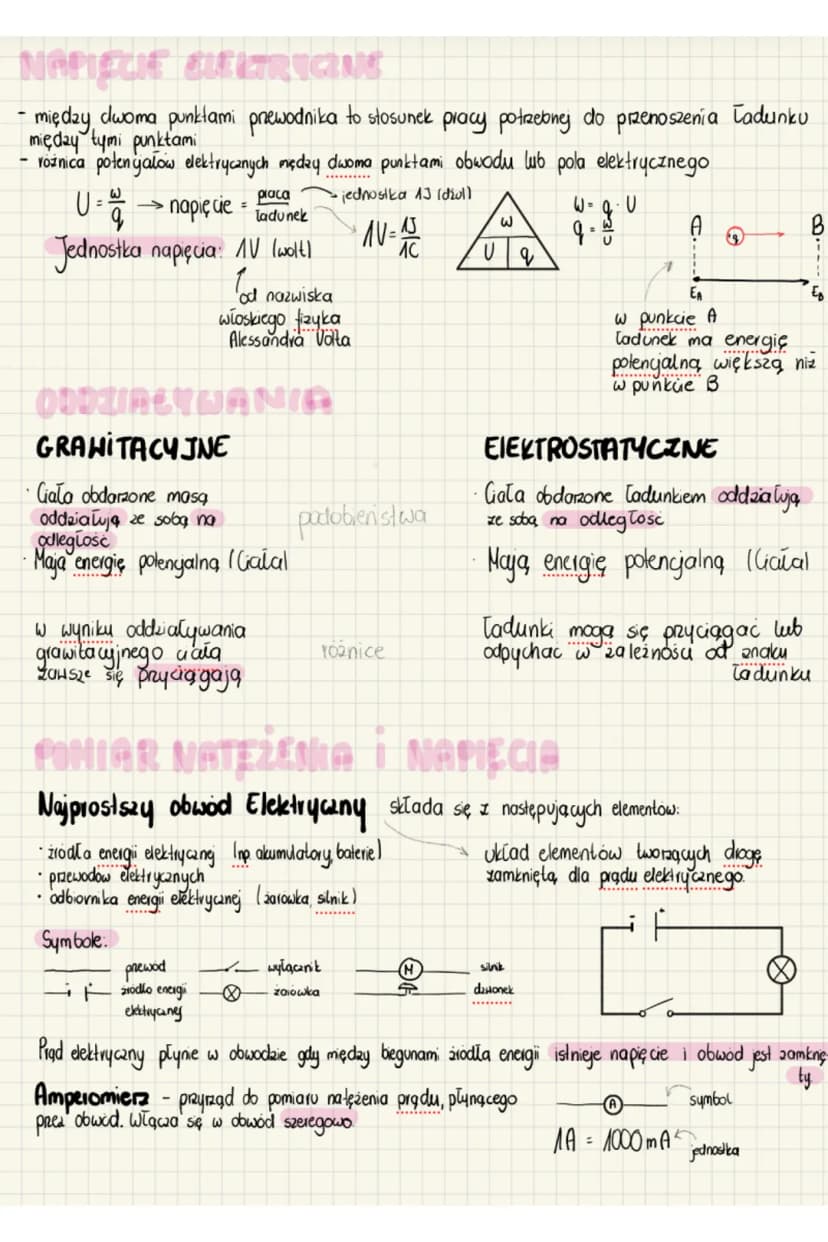 NAPIĘCIE ELEKTRYCZNE
- między dwoma punktami przewodnika to stosunek pracy potrzebnej do przenoszenia ładunku
między tymi punktami
- różnica potencjałów elektrycznych między dwoma punktami obwodu lub pola elektrycznego
U = W/q → napięcie = praca/ładunek → jednostka 1J (dżul)
1V = 1J/1C
W
U q
W = q · U
q = W/U
A q B
EA EB
Jednostka napięcia: 1V (wolt)
od nazwiska
włoskiego fizyka
Alessandra Volta
w punkcie A
ładunek ma energię
potencjalną większą niż
w punkcie B
ODDZIAŁYWANIA
GRAWITACYJNE
ELEKTROSTATYCZNE
· Ciała obdarzone masą
oddziałują ze sobą na
odległość
podobieństwa
· Ciała obdarzone ładunkiem oddziałują
ze sobą na odległość
· Mają energię potencjalną (Ciała)
· Mają energię potencjalną (Ciała)
w wyniku oddziaływania
grawitacyjnego ciała
zawsze się przyciągają
różnice
Ładunki mogą się przyciągać lub
odpychać w zależności od znaku
ładunku
POMIAR NATĘŻENIA i NAPIĘCIA
Najprostszy obwód Elektryczny składa się z następujących elementów:
· źródła energii elektrycznej (np akumulatory, baterie)
· przewodów elektrycznych
· odbiornika energii elektrycznej (żarówka, silnik)
układ elementów tworzących drogę
zamkniętą dla prądu elektrycznego.
Symbole:
przewód wyłącznik M silnik
źródło energii żarówka dzwonek
elektrycznej
- +
Prąd elektryczny płynie w obwodzie gdy między biegunami źródła energii istnieje napięcie i obwód jest zamknę-
ty.
Amperomierz - przyrząd do pomiaru natężenia prądu, płynącego
przez obwód. Włącza się w obwód szeregowo.
A symbol
1A = 1000mA jednostka